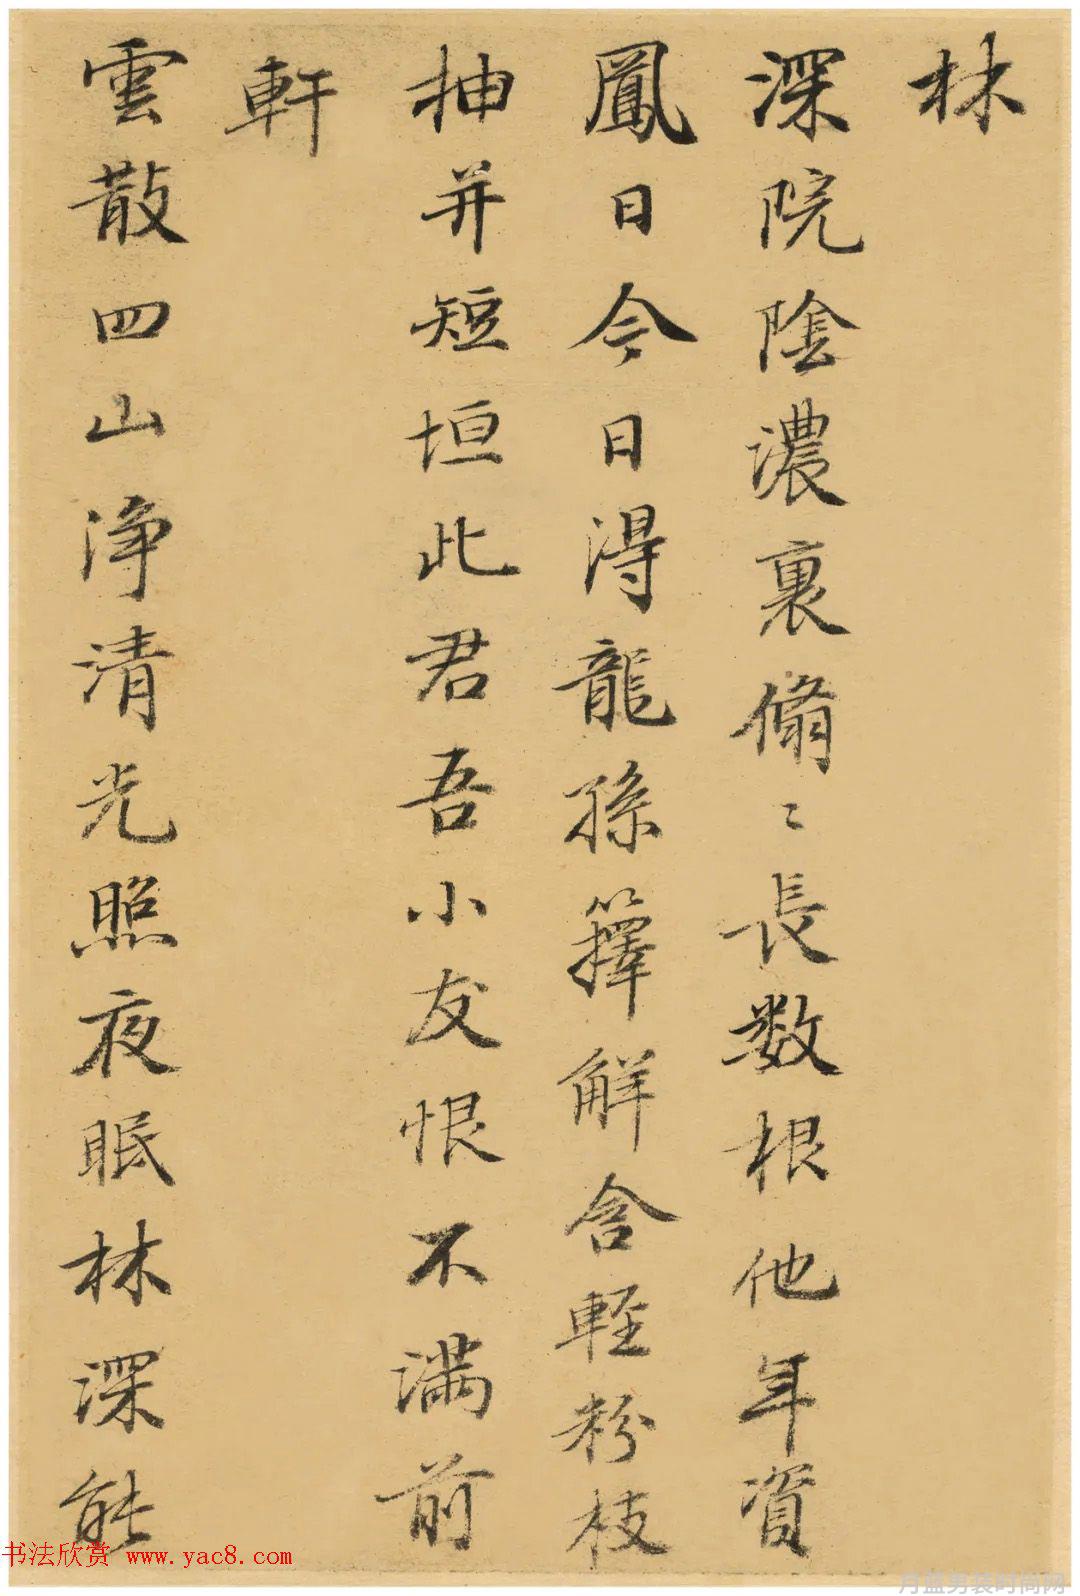 林
深院陰濃裏脩〻長数根他年資
鳳日今日得龍孫籜解含輕粉枝
抽并短垣此君吾小友恨不滿前
軒
雲散四山浄清光照夜眠林深能
书法欣赏 www.yac8.com